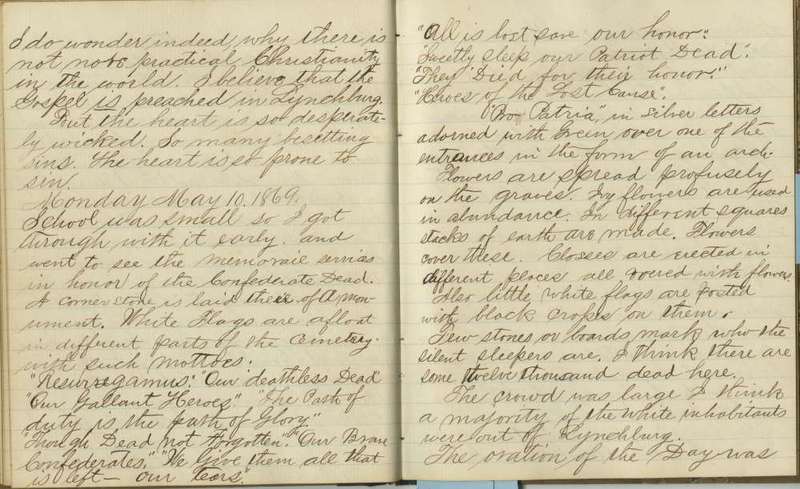 I do wonder indeed why there is
not more practical Christianity
in the world. I believe that the
Gospel is preached in Lynchburg.
But the heart is so desperate-
ly wicked. So many besetting
sins. The heart is so prone to
sin.
Monday May 10. 1869.
School was small so I got
through with it early. and
went to see the memorial services
in honor of the Confederate Dead.
A cornerstone is laid there of a mon-
ument. White Flags are afloat
in different parts of the Cemetery.
with such mottoes.
"Resurregamus." "Our deathless Dead"
"Our Gallant Heroes" "The Path of
duty is the path of Glory"
"Though Dead not forgotten." "Our Brave
Confederates." "We give them all that
is left— our tears".
"All is lost save our honor".
"Sweetly sleep our Patriot Dead".
"They Died for their honor."
"Heroes of the Lost Cause".
"Pro Patria", in silver letters
adorned with Green over one of the
entrances in the form of an arch.
Flowers are spread profusely
on the graves. Ivy flowers are used
in abundance. In different squares
stacks of earth are made. Flowers
cover these. Crosses are erected in
different places all covered with flowers
Also little white flags are posted
with black crapes on them.
Few stones or boards mark who the
silent sleepers are. I think there are
some twelve thousand dead here.
The crowd was large I think
a majority of the white inhabitants
were out of Lynchburg.
The oration of the Day was